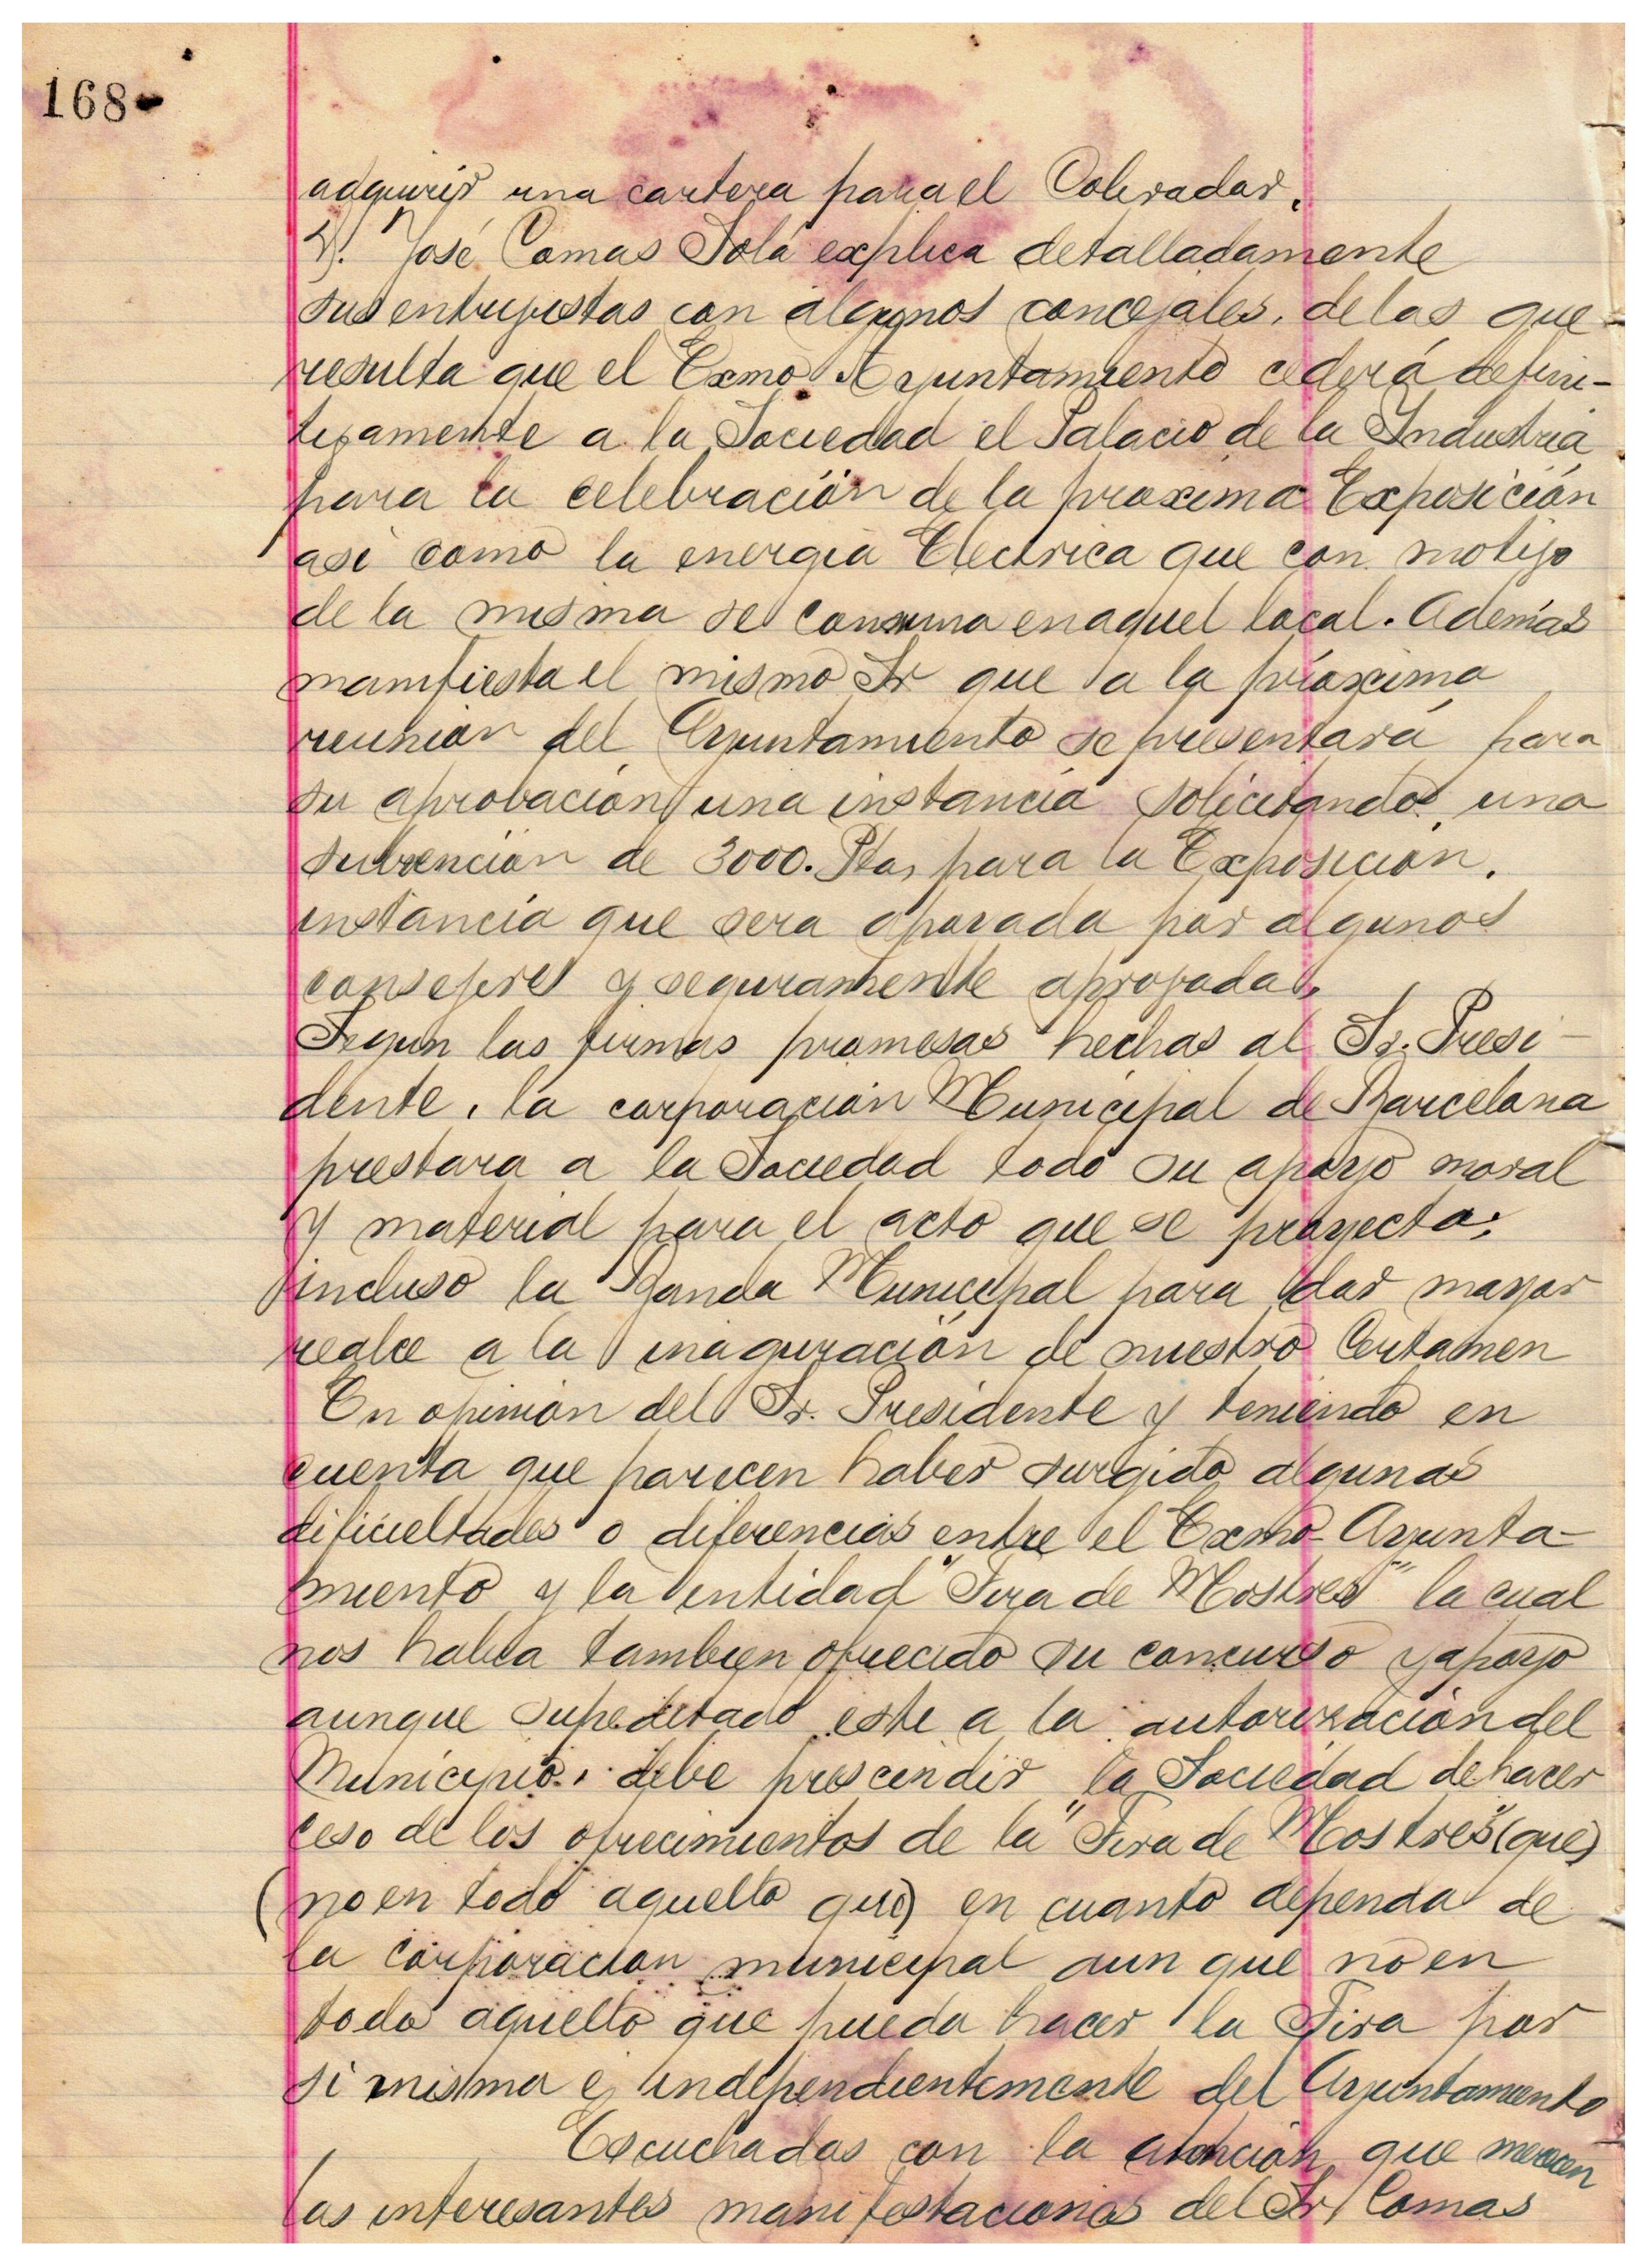 168
adquirir una cartera para el Cobrador.
D. José Comas Solá explica detalladamente
sus entrevistas con algunos concejales, de las que
resulta que el Exmo. Ayuntamiento cederá defini-
tivamente a la Sociedad el Palacio de la Industria
para la celebración de la proxima Exposición
asi como la energia Electrica que con motivo
de la misma se consuma en aquel local. Además
manifiesta el mismo Sr que a la próxima
reunion del Ayuntamiento se presentará para
su aprobación una instancia solicitando, una
subvención de 3000. Ptas, para la Exposición,
instancia que sera apoyada por algunos
y seguramente aprobada.
Segun las firmas promesas hechas al Sr. Presi-
dente, la corporación Municipal de Barcelona
prestara a la Sociedad todo su apoyo moral
y material para el acto que se proyecta;
incluso la Banda Municipal para dar mayor
realce a la inaguración de nuestro Certamen
En opinión del Sr. Presidente y teniendo en
cuenta que parecen haber surgido algunas
dificultades o diferencias entre el Exmo Ayunta-
miento y la entidad "Fira de Mostres" la cual
nos habia tambien ofrecido su concurso y apoyo
aunque supeditado este a la autorización del
Municipio, debe prescindir la Sociedad de hacer
ceso de los ofrecimientos de la "Fira de Mostres" (que)
(no en todo aquello que) en cuanto dependa de
la corporacion municipal aun que no en
todo aquello que pueda hacer la Fira por
si misma e independientemente del Ayuntamiento
Escuchadas con la atención que merecen
las interesantes manifestaciones del Sr Comas